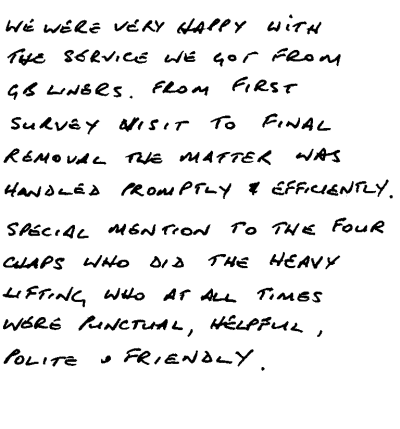 WE WERE VERY HAPPY WITH
THE SERVICE WE GOT FROM
GB LINERS. FROM FIRST
SURVEY VISIT TO FINAL
REMOVAL THE MATTER WAS
HANDLED PROMPTLY & EFFICIENTLY.
SPECIAL MENTION TO THE FOUR
CHAPS WHO DID THE HEAVY
LIFTING WHO AT ALL TIMES
WERE PUNCTUAL, HELPFUL,
POLITE & FRIENDLY.